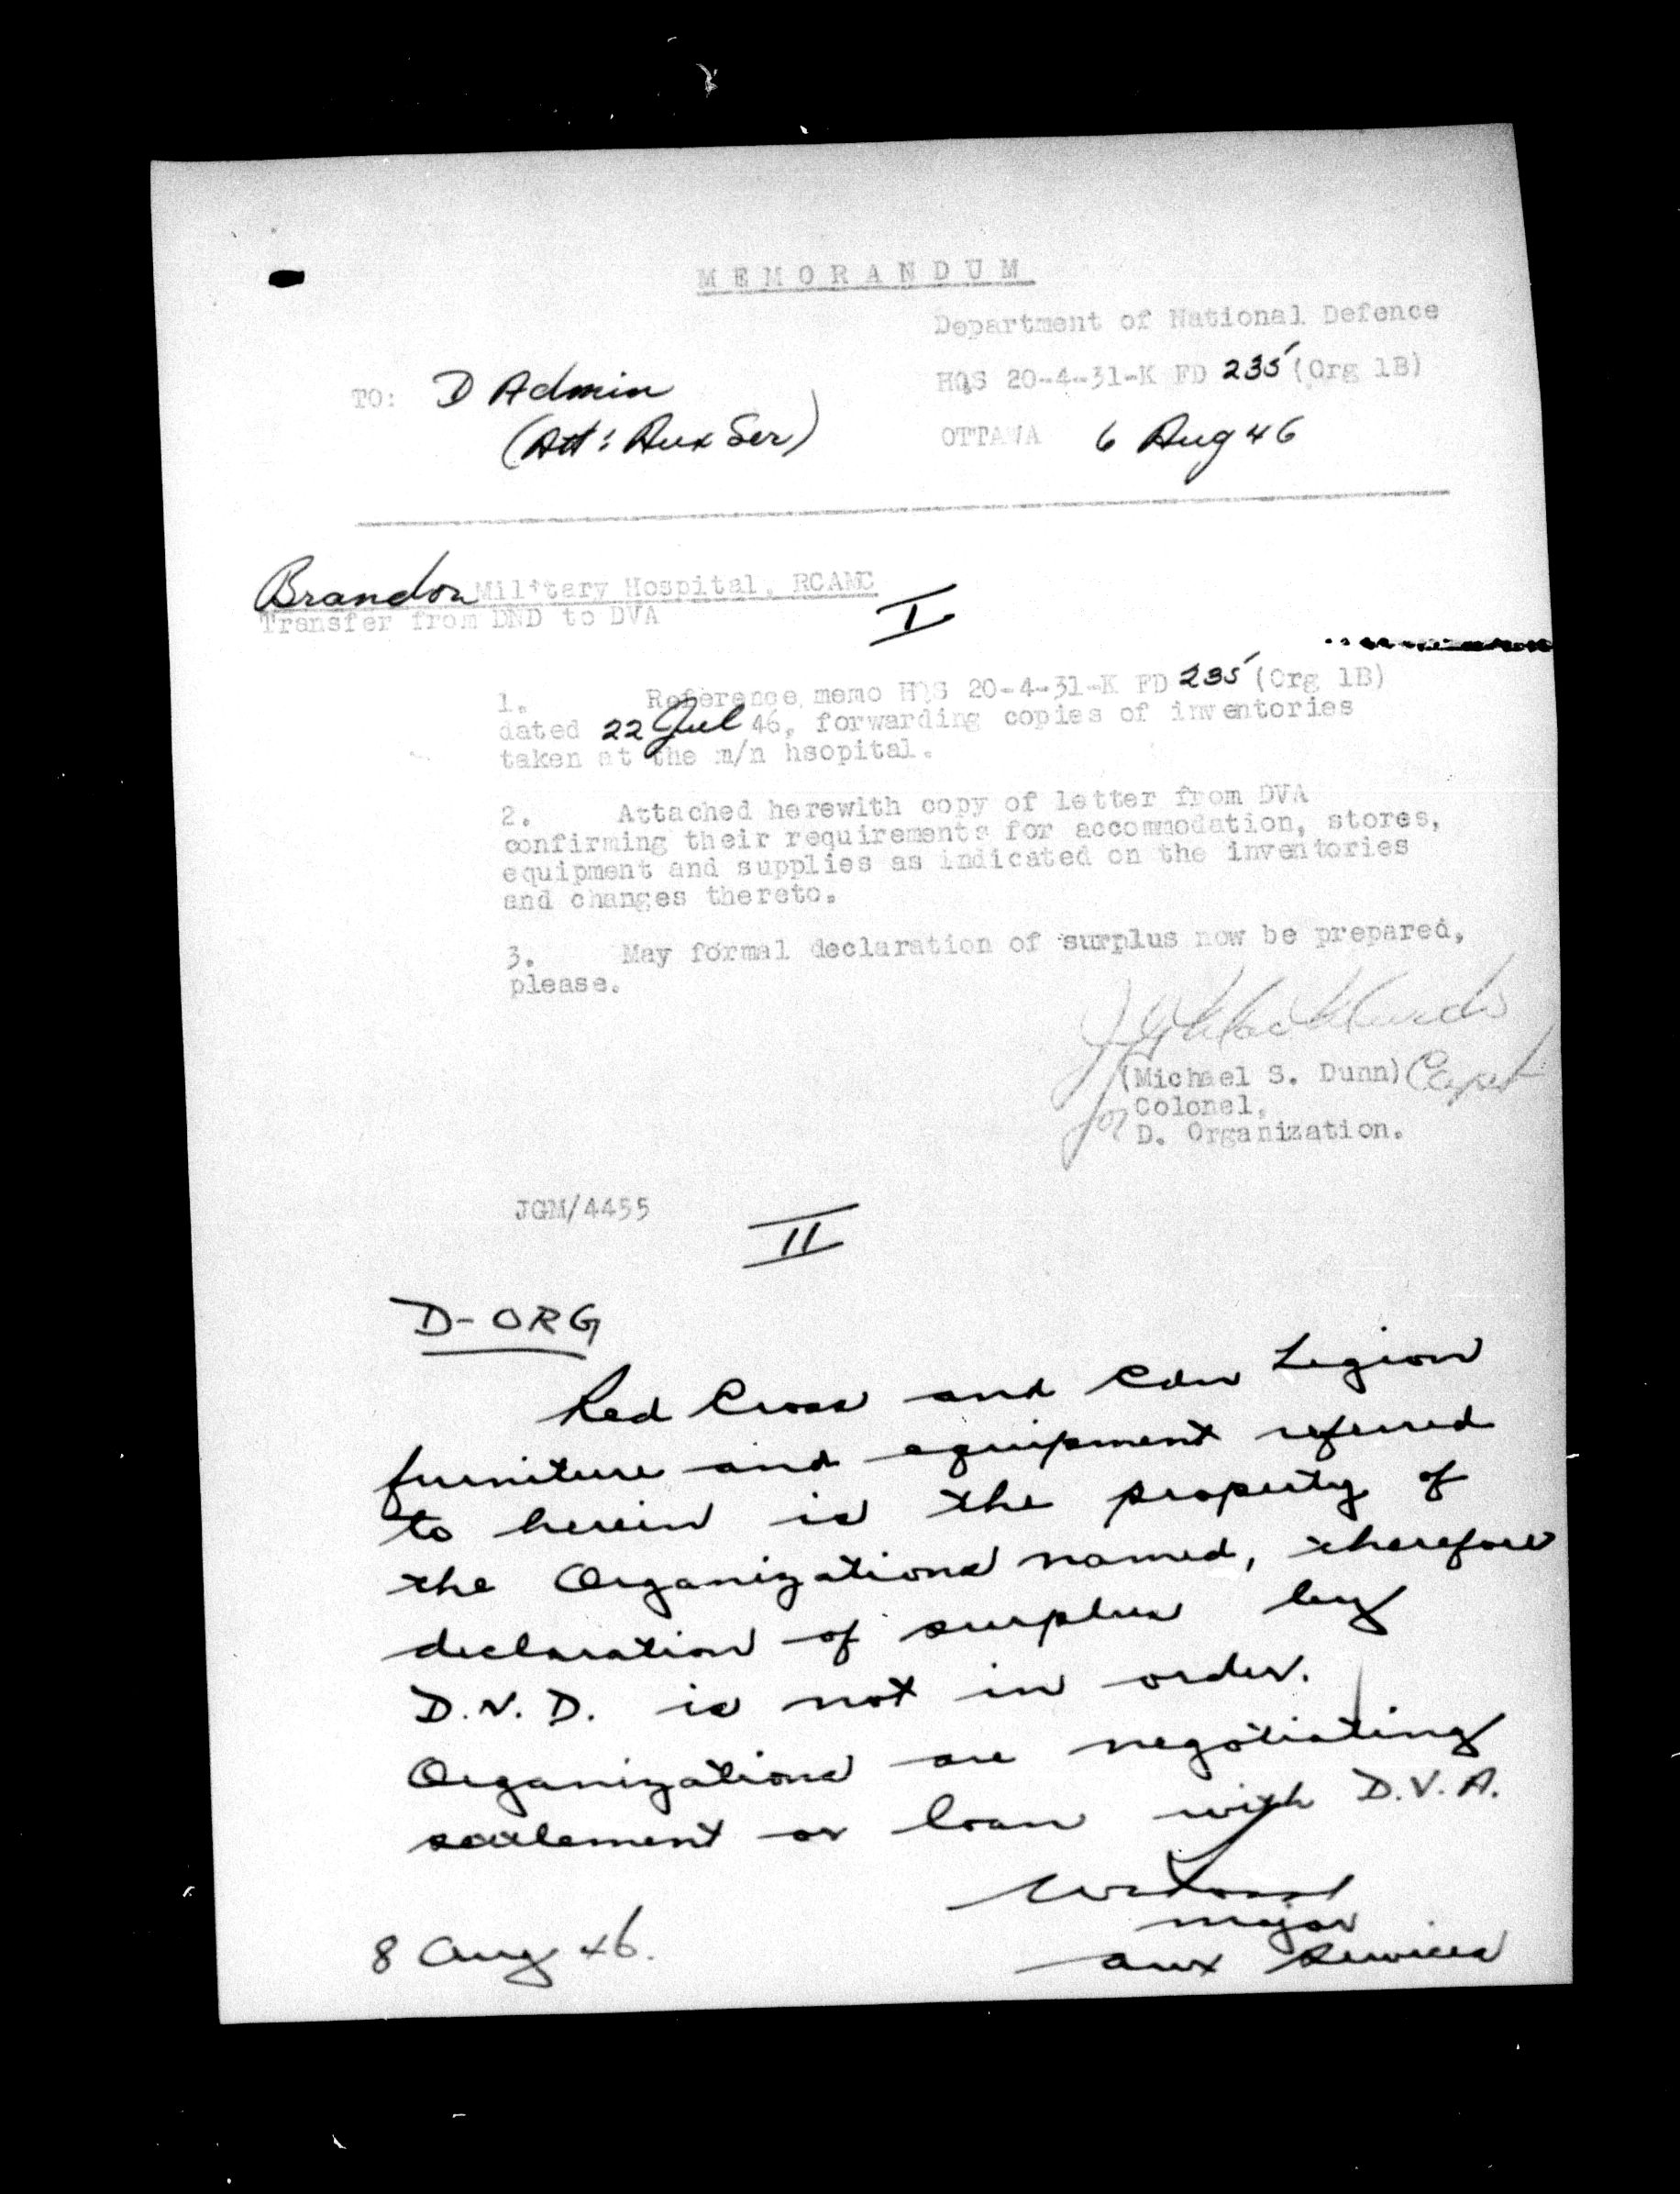 MEMORANDUM
Department of National Defence
HQS 20-4-31-K FD 235 (Org 1B)
TO: D Admin
(Att: Aux Ser)
OTTAWA 6 Aug 46
Brandon Military Hospital, RCAMC
Transfer from DND to DVA
I
1. Reference memo HQS 20-4-31-K FD 235 (Org 1B)
dated 22 Jul 46, forwarding copies of inventories
taken at the m/n hsopital.
2. Attached herewith copy of letter from DVA
confirming their requirements for accommodation, stores,
equipment and supplies as indicated on the inventories
and changes thereto.
3. May formal declaration of surplus now be prepared,
please.
(Michael S. Dunn) Capt
for Colonel,
D. Organization.
JGM/4455
II
D-ORG
Red Cross and Cdn Legion
furniture and equipment referred
to herein is the property of
the Organizations named, therefore
declaration of surplus by
D.N.D. is not in order.
Organizations are negotiating
settlement or loan with D.V.A.
Major
Aux Services
8 Aug 46.